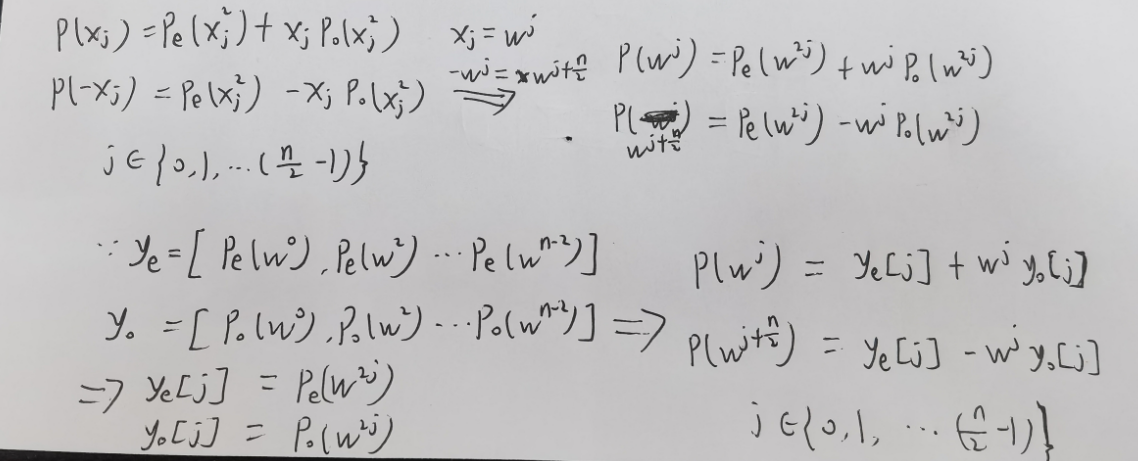 P(xⱼ) = Pe(xⱼ²) + xⱼ Po(xⱼ²)
P(-xⱼ) = Pe(xⱼ²) - xⱼ Po(xⱼ²)
j ∈ {0,1,…(n/2 -1)}
xⱼ = w^j
-w^j = w^(j+n/2)
⟹
P(w^j) = Pe(w^(2j)) + w^j Po(w^(2j))
P(w^(j+n/2)) = Pe(w^(2j)) - w^j Po(w^(2j))
∵ ye = [Pe(w^0), Pe(w^2) … Pe(w^(n-2))]
yo = [Po(w^0), Po(w^2) … Po(w^(n-2))] ⟹
⟹ ye[j] = Pe(w^(2j))
yo[j] = Po(w^(2j))
P(w^j) = ye[j] + w^j yo[j]
P(w^(j+n/2)) = ye[j] - w^j yo[j]
j ∈ {0,1, … (n/2 -1)}